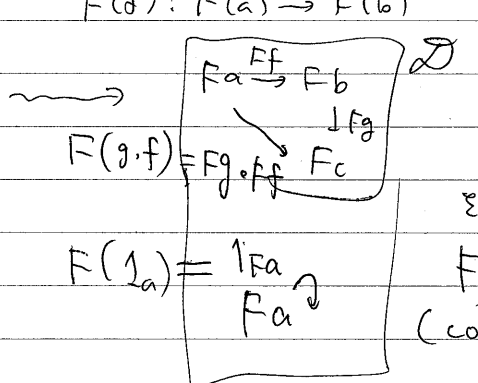 F(g) : F(a) → F(b)
Fa Ff→ Fb
↓Fg
F(g.f) = Fg.Ff Fc
D
F(1a) = 1Fa
Fa
F
(co